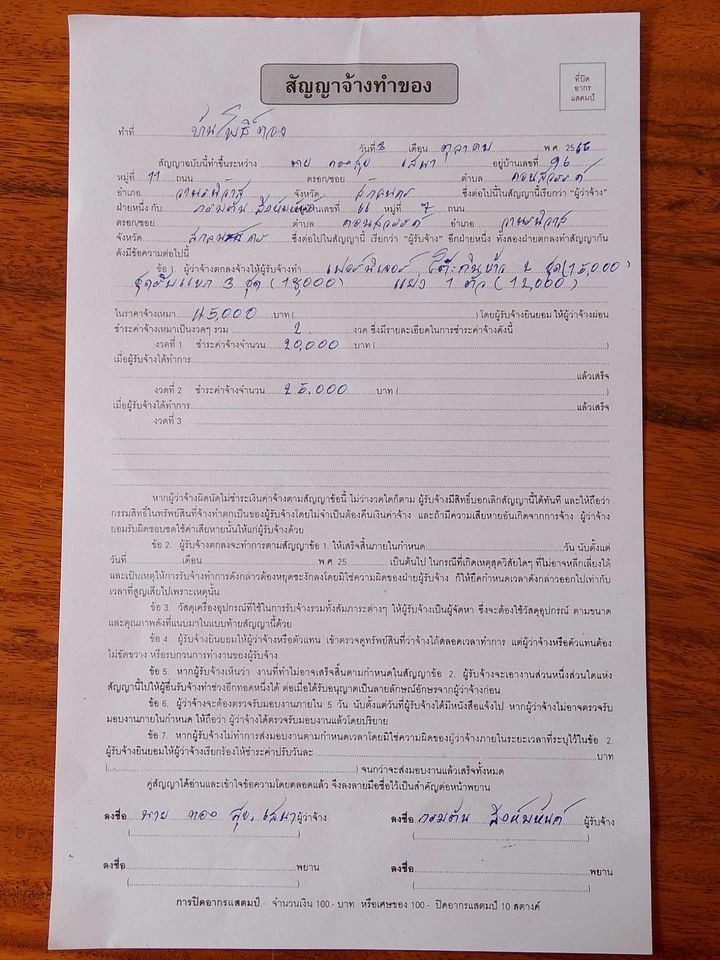 สัญญาจ้างทำของ
ที่ปิด
อากร
แสตมป์
ทำที่ บ้านโพธิ์ทอง
วันที่ 3 เดือน ตุลาคม พ.ศ. 2565
สัญญาฉบับนี้ทำขึ้นระหว่าง นาย ทองสุข เสนา อยู่บ้านเลขที่ 96
หมู่ที่ 11 ถนน ตรอก/ซอย ตำบล ดอนสวรรค์
อำเภอ วานรนิวาส จังหวัด สกลนคร ซึ่งต่อไปนี้ในสัญญานี้เรียกว่า "ผู้ว่าจ้าง"
ฝ่ายหนึ่ง กับ สิงห์มหันต์ บ้านเลขที่ 66 หมู่ที่ 7 ถนน
ตรอก/ซอย ตำบล ดอนสวรรค์ อำเภอ วานรนิวาส
จังหวัด สกลนคร ซึ่งต่อไปในสัญญานี้ เรียกว่า "ผู้รับจ้าง" อีกฝ่ายหนึ่ง ทั้งสองฝ่ายตกลงทำสัญญากัน
ดังมีข้อความต่อไปนี้
ข้อ 1. ผู้ว่าจ้างตกลงจ้างให้ผู้รับจ้างทำ เฟอร์นิเจอร์ โต๊ะกินข้าว 2 ชุด (15,000)
ชุดรับแขก 3 ชุด (18,000) 1 ตัว (12,000)
ในราคาจ้างเหมา 45,000 บาท ( ) โดยผู้รับจ้างยินยอม ให้ผู้ว่าจ้างผ่อน
ชำระค่าจ้างเหมาเป็นงวดๆ รวม 2. งวด ซึ่งมีรายละเอียดในการชำระค่าจ้างดังนี้
งวดที่ 1 ชำระค่าจ้างจำนวน 20,000 บาท ( )
เมื่อผู้รับจ้างได้ทำการ
แล้วเสร็จ
งวดที่ 2 ชำระค่าจ้างจำนวน 25.000 บาท ( )
เมื่อผู้รับจ้างได้ทำการ แล้วเสร็จ
งวดที่ 3
หากผู้ว่าจ้างผิดนัดไม่ชำระเงินค่าจ้างตามสัญญาข้อนี้ ไม่ว่างวดใดก็ตาม ผู้รับจ้างมีสิทธิ์บอกเลิกสัญญานี้ได้ทันที และให้ถือว่า
กรรมสิทธิ์ในทรัพย์สินที่จ้างทำตกเป็นของผู้รับจ้างโดยไม่จำเป็นต้องคืนเงินค่าจ้าง และถ้ามีความเสียหายอันเกิดจากการจ้าง ผู้ว่าจ้าง
ยอมรับผิดชอบชดใช้ค่าเสียหายนั้นให้แก่ผู้รับจ้างด้วย
ข้อ 2. ผู้รับจ้างตกลงจะทำการตามสัญญาข้อ 1. ให้เสร็จสิ้นภายในกำหนด วัน นับตั้งแต่
วันที่ เดือน พ.ศ. 25 เป็นต้นไป ในกรณีที่เกิดเหตุสุดวิสัยใดๆ ที่ไม่อาจหลีกเลี่ยงได้
และเป็นเหตุให้การรับจ้างทำการดังกล่าวต้องหยุดชะงักลงโดยมิใช่ความผิดของฝ่ายผู้รับจ้าง ก็ให้ยืดกำหนดเวลาดังกล่าวออกไปเท่ากับ
เวลาที่สูญเสียไปเพราะเหตุนั้น
ข้อ 3. วัสดุเครื่องอุปกรณ์ที่ใช้ในการรับจ้างรวมทั้งสัมภาระต่างๆ ให้ผู้รับจ้างเป็นผู้จัดหา ซึ่งจะต้องใช้วัสดุอุปกรณ์ ตามขนาด
และคุณภาพดังที่แนบมาในแบบท้ายสัญญานี้ด้วย
ข้อ 4. ผู้รับจ้างยินยอมให้ผู้ว่าจ้างหรือตัวแทน เข้าตรวจดูทรัพย์สินที่ว่าจ้างได้ตลอดเวลาทำการ แต่ผู้ว่าจ้างหรือตัวแทนต้อง
ไม่ขัดขวาง หรือรบกวนการทำงานของผู้รับจ้าง
ข้อ 5. หากผู้รับจ้างเห็นว่า งานที่ทำไม่อาจเสร็จสิ้นตามกำหนดในสัญญาข้อ 2. ผู้รับจ้างจะเอางานส่วนหนึ่งส่วนใดแห่ง
สัญญานี้ไปให้ผู้อื่นรับจ้างทำช่วงอีกทอดหนึ่งได้ ต่อเมื่อได้รับอนุญาตเป็นลายลักษณ์อักษรจากผู้ว่าจ้างก่อน
ข้อ 6. ผู้ว่าจ้างจะต้องตรวจรับมอบงานภายใน 5 วัน นับตั้งแต่วันที่ผู้รับจ้างได้มีหนังสือแจ้งไป หากผู้ว่าจ้างไม่อาจตรวจรับ
มอบงานภายในกำหนด ให้ถือว่า ผู้ว่าจ้างได้ตรวจรับมอบงานแล้วโดยปริยาย
ข้อ 7. หากผู้รับจ้างไม่ทำการส่งมอบงานตามกำหนดเวลาโดยมิใช่ความผิดของผู้ว่าจ้างภายในระยะเวลาที่ระบุไว้ในข้อ 2.
ผู้รับจ้างยินยอมให้ผู้ว่าจ้างเรียกร้องให้ชำระค่าปรับวันละ บาท
( ) จนกว่าจะส่งมอบงานแล้วเสร็จทั้งหมด
คู่สัญญาได้อ่านและเข้าใจข้อความโดยตลอดแล้ว จึงลงลายมือชื่อไว้เป็นสำคัญต่อหน้าพยาน
ลงชื่อ นาย ทอง สุข. เสนา ผู้ว่าจ้าง ลงชื่อ สิงห์มหันต์ ผู้รับจ้าง
( ) ( )
ลงชื่อ พยาน ลงชื่อ พยาน
( ) ( )
การปิดอากรแสตมป์.- จำนวนเงิน 100.- บาท หรือเศษของ 100.- ปิดอากรแสตมป์ 10 สตางค์